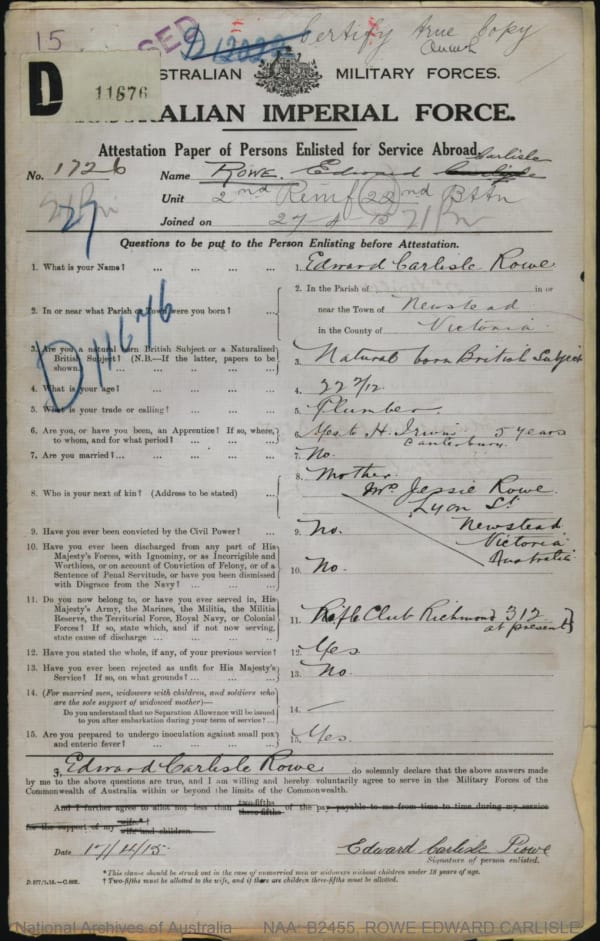 15
SED
D 12022
Certify true Copy
D
11676
AUSTRALIAN MILITARY FORCES.
AUSTRALIAN IMPERIAL FORCE.
Attestation Paper of Persons Enlisted for Service Abroad.
No. 1726 Name ROWE. Edward Carlisle
Unit 2nd Reinf (22)nd Battn
Joined on 15
Questions to be put to the Person Enlisting before Attestation.
D11676
1. What is your Name? ... ... ... ... 1. Edward Carlisle Rowe
2. In or near what Parish or Town were you born? ... 2. In the Parish of in or
near the Town of Newstead
in the County of Victoria
3. Are you a natural born British Subject or a Naturalized
British Subject? (N.B.—If the latter, papers to be
shown.) ... ... ... ... 3. Natural born British Subject
4. What is your age? ... ... ... ... 4. 22 2/12
5. What is your trade or calling? ... ... ... 5. Plumber.
6. Are you, or have you been, an Apprentice? If so, where,
to whom, and for what period? ... ... ... 6. Yes to H. Irwin 5 years
Canterbury.
7. Are you married?... ... ... ... 7. No.
8. Who is your next of kin? (Address to be stated) ... 8. Mother.
Mrs Jessie Rowe
Lyon St
Newstead
Victoria
Australia
9. Have you ever been convicted by the Civil Power? ... 9. No.
10. Have you ever been discharged from any part of His
Majesty's Forces, with Ignominy, or as Incorrigible and
Worthless, or on account of Conviction of Felony, or of a
Sentence of Penal Servitude, or have you been dismissed
with Disgrace from the Navy? ... ... ... 10. No.
11. Do you now belong to, or have you ever served in, His
Majesty's Army, the Marines, the Militia, the Militia
Reserve, the Territorial Force, Royal Navy, or Colonial
Forces? If so, state which, and if not now serving,
state cause of discharge ... ... ... 11. Rifle Club Richmond 312
at present
12. Have you stated the whole, if any, of your previous service? 12. Yes
13. Have you ever been rejected as unfit for His Majesty's
Service? If so, on what grounds? ... ... ... 13. No.
14. (For married men, widowers with children, and soldiers who
are the sole support of widowed mother)—
Do you understand that no Separation Allowance will be issued
to you after embarkation during your term of service? ... 14. —
15. Are you prepared to undergo inoculation against small pox
and enteric fever? ... ... ... ... 15. Yes.
I, Edward Carlisle Rowe do solemnly declare that the above answers made
by me to the above questions are true, and I am willing and hereby voluntarily agree to serve in the Military Forces of the
Commonwealth of Australia within or beyond the limits of the Commonwealth.
And I further agree to allot not less than two-fifths three-fifths of the pay payable to me from time to time during my service
for the support of my wife*† wife and children.
Date 17/4/15 Edward Carlisle Rowe
Signature of person enlisted.
* This clause should be struck out in the case of unmarried men or widowers without children under 18 years of age.
† Two-fifths must be allotted to the wife, and if there are children three-fifths must be allotted.
National Archives of Australia NAA: B2455, ROWE EDWARD CARLISLE